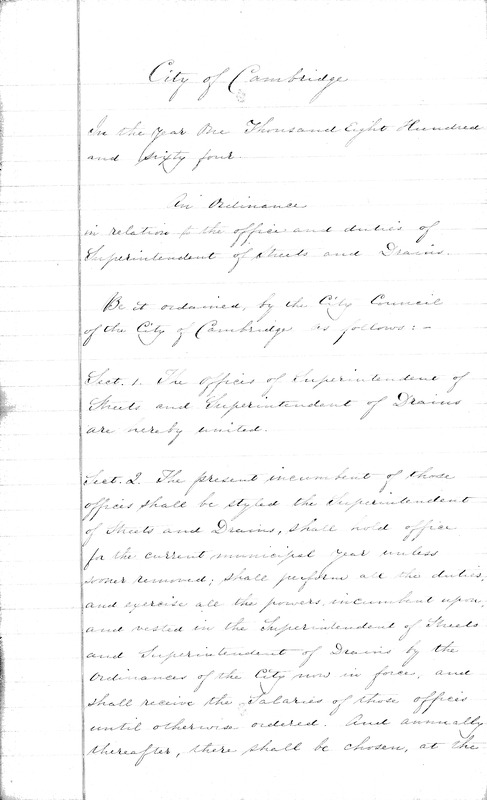 City of Cambridge
In the year One Thousand Eight Hundred
and sixty four.
An Ordinance
in relation to the office and duties of
Superintendent of Streets and Drains.
Be it ordained, by the City Council
of the City of Cambridge as follows: -
Sect. 1. The Offices of Superintendent of
Streets and Superintendent of Drains
are hereby united.
Sect. 2. The present incumbent of those
offices shall be styled the Superintendent
of Streets and Drains, shall hold office
for the current municipal year unless
sooner removed; shall perform all the duties,
and exercise all the powers, incumbent upon
and vested in the Superintendent of Streets
and Superintendent of Drains by the
Ordinances of the City now in force, and
shall receive the Salaries of those offices
until otherwise ordered. And annually
thereafter, there shall be chosen, at the